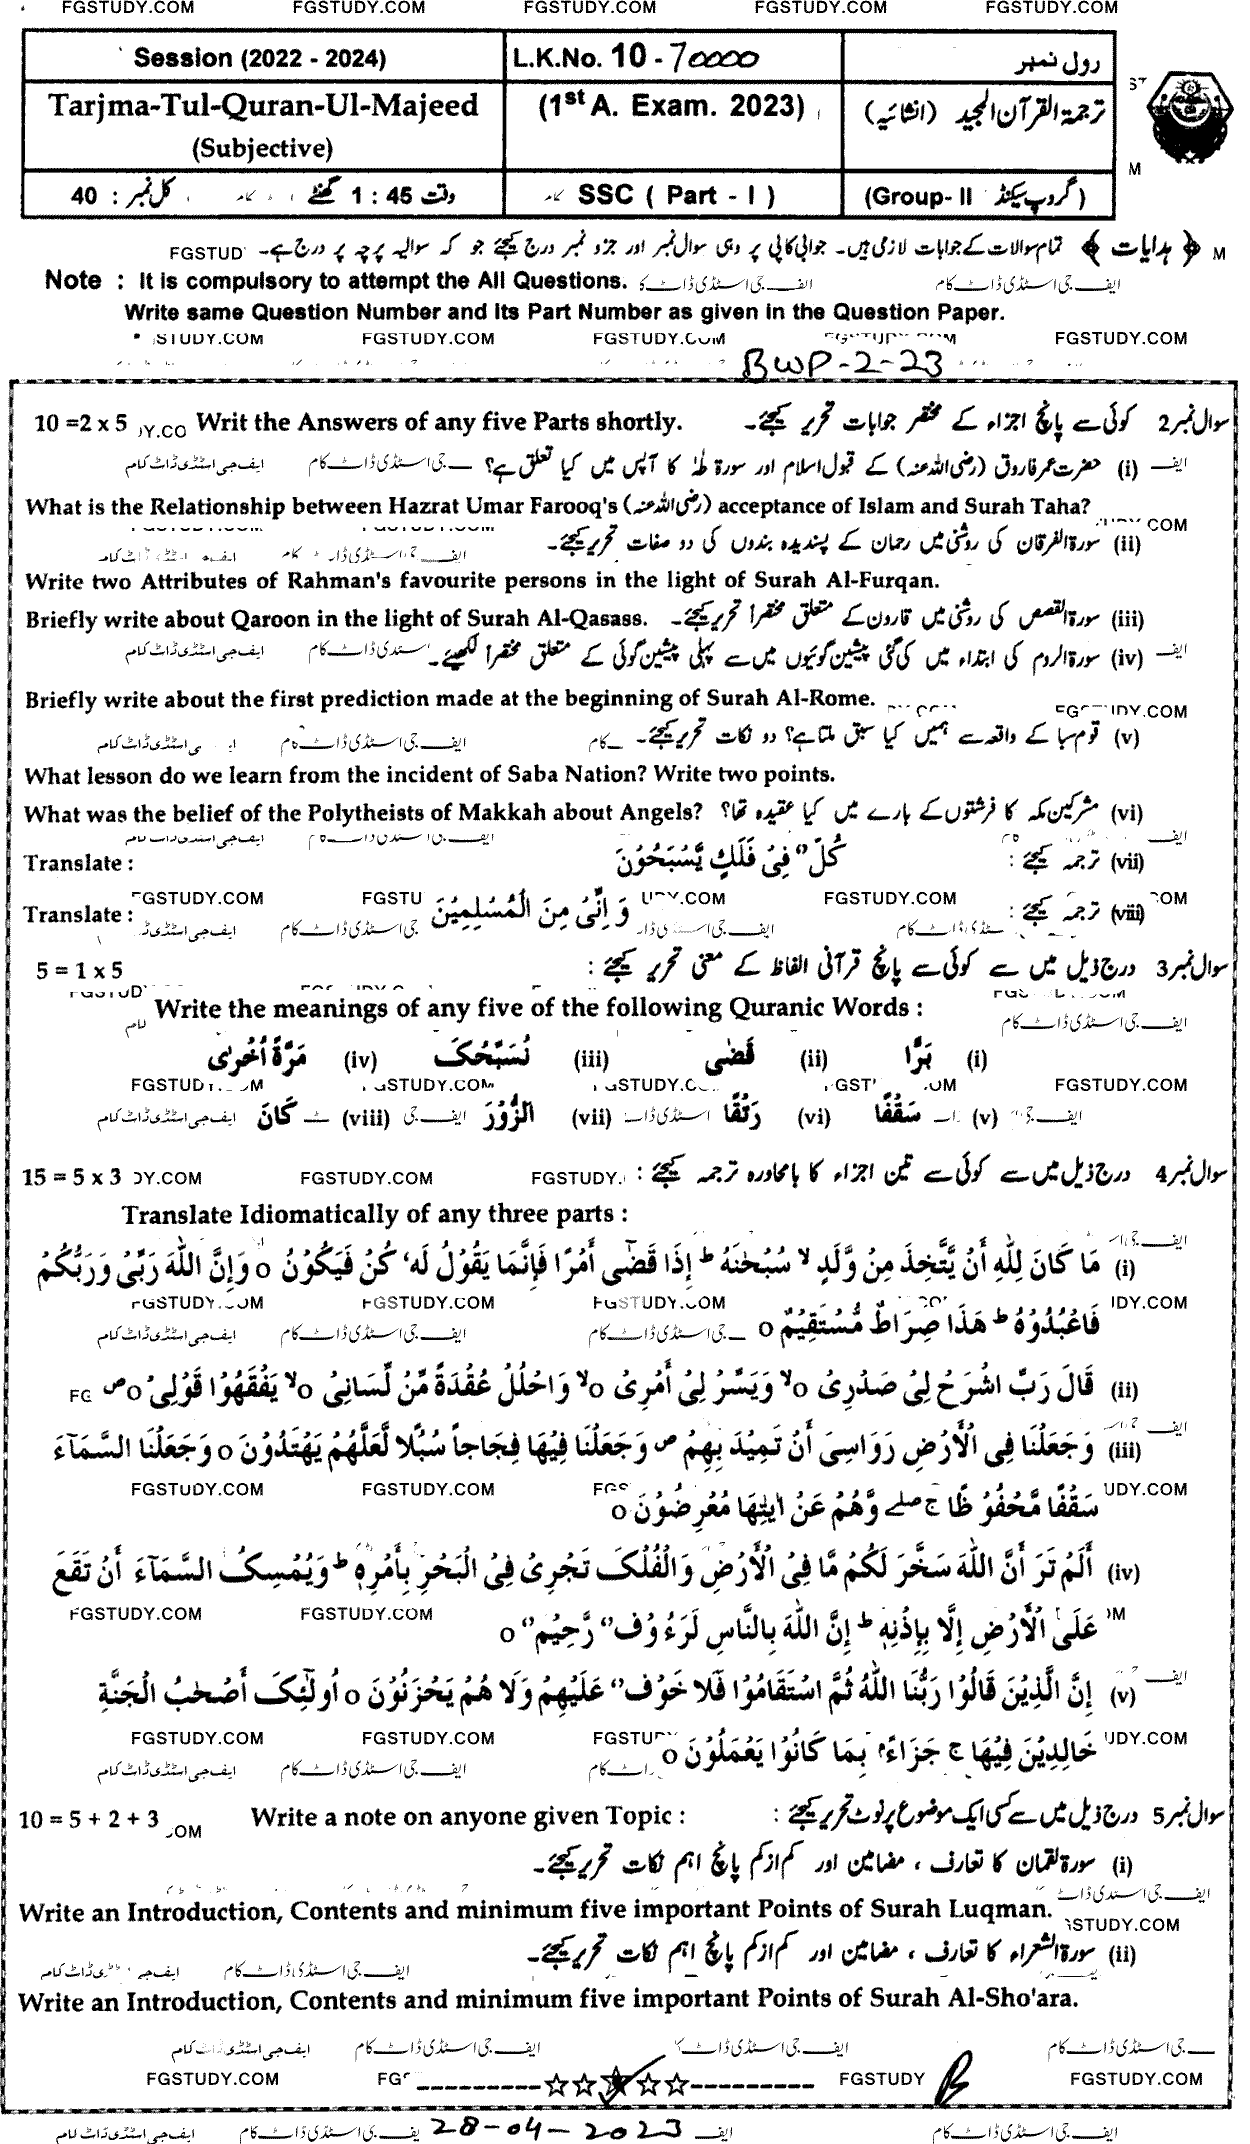 FGSTUDY.COM FGSTUDY.COM FGSTUDY.COM FGSTUDY.COM FGSTUDY.COM
Session (2022 - 2024) L.K.No. 10 - 70000 رول نمبر
Tarjma-Tul-Quran-Ul-Majeed (1st A. Exam. 2023) ترجمۃ القرآن المجید (انشائیہ)
(Subjective)
کل نمبر : 40 وقت 1 : 45 گھنٹے SSC ( Part - I ) (Group- II گروپ سیکنڈ)
﴿ ہدایات ﴾ تمام سوالات کے جوابات لازمی ہیں۔ جوابی کاپی پر وہی سوال نمبر اور جزو نمبر درج کیجئے جو کہ سوالیہ پرچہ پر درج ہے۔ FGSTUD
Note : It is compulsory to attempt the All Questions. ایف جی اسٹڈی ڈاٹ کام
Write same Question Number and its Part Number as given in the Question Paper.
STUDY.COM FGSTUDY.COM FGSTUDY.COM FGSTUDY.COM
BWP-2-23
سوال نمبر 2 کوئی سے پانچ اجزاء کے مختصر جوابات تحریر کیجئے۔ Writ the Answers of any five Parts shortly. 10 =2 x 5
(i) حضرت عمر فاروق (رضی اللہ عنہ) کے قبول اسلام اور سورۃ طٰہٰ کا آپس میں کیا تعلق ہے؟
What is the Relationship between Hazrat Umar Farooq's (رضی اللہ عنہ) acceptance of Islam and Surah Taha?
(ii) سورۃ الفرقان کی روشنی میں رحمان کے پسندیدہ بندوں کی دو صفات تحریر کیجئے۔
Write two Attributes of Rahman's favourite persons in the light of Surah Al-Furqan.
Briefly write about Qaroon in the light of Surah Al-Qasass. (iii) سورۃ القصص کی روشنی میں قارون کے متعلق مختصراً تحریر کیجئے۔
(iv) سورۃ الروم کی ابتداء میں کی گئی پیشین گوئیوں میں سے پہلی پیشین گوئی کے متعلق مختصراً لکھیئے۔
Briefly write about the first prediction made at the beginning of Surah Al-Rome.
(v) قوم سبا کے واقعہ سے ہمیں کیا سبق ملتا ہے؟ دو نکات تحریر کیجئے۔
What lesson do we learn from the incident of Saba Nation? Write two points.
What was the belief of the Polytheists of Makkah about Angels? (vi) مشرکین مکہ کا فرشتوں کے بارے میں کیا عقیدہ تھا؟
Translate : كُلٌّ فِىْ فَلَكٍ يَّسْبَحُوْنَ (vii) ترجمہ کیجئے :
FGSTUDY.COM
Translate : وَاِنِّىْ مِنَ الْمُسْلِمِيْنَ (viii) ترجمہ کیجئے :
5 = 1 x 5 سوال نمبر 3 درج ذیل میں سے کوئی سے پانچ قرآنی الفاظ کے معنی تحریر کیجئے :
Write the meanings of any five of the following Quranic Words :
(i) بَرًّا (ii) قَضٰى (iii) نُسَبِّحُكَ (iv) مَرَّةً اُخْرٰى
FGSTUDY.COM
(v) سَقْفًا (vi) رَتْقًا (vii) الزُّوْرَ (viii) كَانَ
15 = 5 x 3 سوال نمبر 4 درج ذیل میں سے کوئی سے تین اجزاء کا بامحاورہ ترجمہ کیجئے :
Translate Idiomatically of any three parts :
(i) مَا كَانَ لِلّٰهِ اَنْ يَّتَّخِذَ مِنْ وَّلَدٍ لا سُبْحٰنَهٗ ط اِذَا قَضٰٓى اَمْرًا فَاِنَّمَا يَقُوْلُ لَهٗ كُنْ فَيَكُوْنُ o وَاِنَّ اللّٰهَ رَبِّىْ وَرَبُّكُمْ
فَاعْبُدُوْهُ ط هٰذَا صِرَاطٌ مُّسْتَقِيْمٌ o
(ii) قَالَ رَبِّ اشْرَحْ لِىْ صَدْرِىْ o لا وَيَسِّرْ لِىْ اَمْرِىْ o لا وَاحْلُلْ عُقْدَةً مِّنْ لِّسَانِىْ o لا يَفْقَهُوْا قَوْلِىْ o ص
(iii) وَجَعَلْنَا فِى الْاَرْضِ رَوَاسِىَ اَنْ تَمِيْدَ بِهِمْ ص وَجَعَلْنَا فِيْهَا فِجَاجًا سُبُلًا لَّعَلَّهُمْ يَهْتَدُوْنَ o وَجَعَلْنَا السَّمَآءَ
سَقْفًا مَّحْفُوْظًا ج صلے وَّهُمْ عَنْ اٰيٰتِهَا مُعْرِضُوْنَ o
(iv) اَلَمْ تَرَ اَنَّ اللّٰهَ سَخَّرَ لَكُمْ مَّا فِى الْاَرْضِ وَالْفُلْكَ تَجْرِىْ فِى الْبَحْرِ بِاَمْرِهٖ ط وَيُمْسِكُ السَّمَآءَ اَنْ تَقَعَ
عَلَى الْاَرْضِ اِلَّا بِاِذْنِهٖ ط اِنَّ اللّٰهَ بِالنَّاسِ لَرَءُوْفٌ رَّحِيْمٌ o
(v) اِنَّ الَّذِيْنَ قَالُوْا رَبُّنَا اللّٰهُ ثُمَّ اسْتَقَامُوْا فَلَا خَوْفٌ عَلَيْهِمْ وَلَا هُمْ يَحْزَنُوْنَ o اُولٰٓئِكَ اَصْحٰبُ الْجَنَّةِ
خَالِدِيْنَ فِيْهَا ج جَزَآءً بِمَا كَانُوْا يَعْمَلُوْنَ o
10 = 5 + 2 + 3 Write a note on anyone given Topic : سوال نمبر 5 درج ذیل میں سے کسی ایک موضوع پر نوٹ تحریر کیجئے :
(i) سورۃ لقمان کا تعارف ، مضامین اور کم از کم پانچ اہم نکات تحریر کیجئے۔
Write an Introduction, Contents and minimum five important Points of Surah Luqman.
(ii) سورۃ الشعراء کا تعارف ، مضامین اور کم از کم پانچ اہم نکات تحریر کیجئے۔
Write an Introduction, Contents and minimum five important Points of Surah Al-Sho'ara.
ایف جی اسٹڈی ڈاٹ کام
FGSTUDY.COM ----------☆☆★☆☆---------- FGSTUDY FGSTUDY.COM
28-04-2023